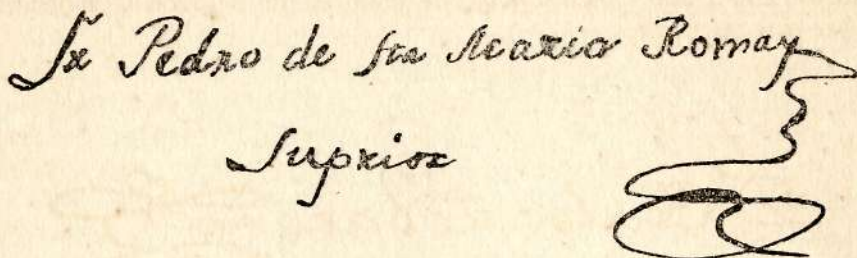 Fr Pedro de Sta Maria Romay
Suprior